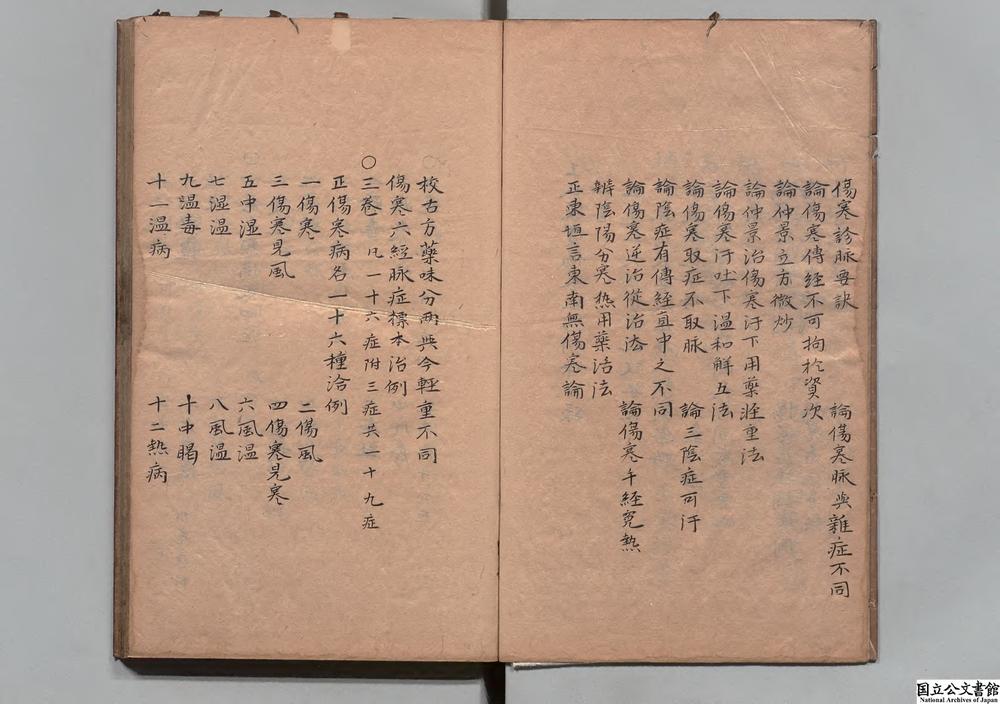 傷寒診脉要訣　論傷寒脉與雜症不同
論傷寒傳经不可拘於資次
論仲景立方微炒
論仲景治傷寒汗下用藥輕重法
論傷寒汗吐下温和解五法
論傷寒取症不取脉　論三陰症可汗
論陰症有傳經直中之不同
論傷寒逆治從治法　論傷寒千経究熱
辨陰陽分寒热用藥活法
正東垣言東南無傷寒論
校古方藥味分两與今輕重不同
傷寒六經脉症標本治例
〇三卷　凡一十六症附三症共一十九症
正傷寒病名一十六種治例
一傷寒　二傷風
三傷寒見風　四傷風見寒
五中湿　六風湿
七湿温　八風温
九温毒　十中暍
十一温病　十二热病
国立公文書館
National Archives of Japan